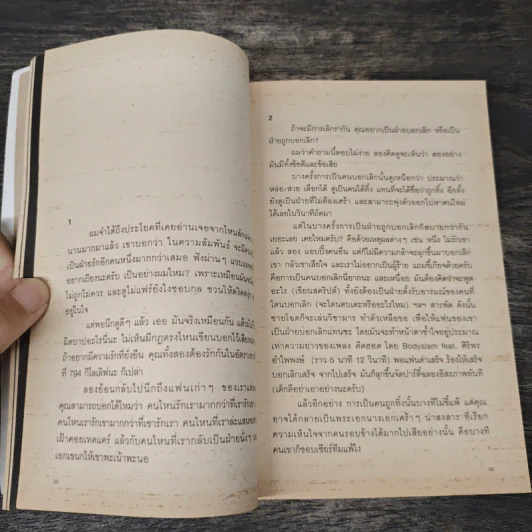 1
ผมจำได้ถึงประโยคที่เคยอ่านเจอจากไหนสัก
นานมากมาแล้ว เขาบอกว่า ในความสัมพันธ์ จะมี
เป็นฝ่ายรักอีกคนหนึ่งมากกว่าเสมอ ฟังผ่านๆ
อยากเถียงนะครับ เป็นอย่างผมไหม? เพราะเหมือนมัน
ไม่ถูกไม่ควร และดูไม่แฟร์ยังไงชอบกล ชวนให้
อยู่ในใจ
แต่พอนึกดูดีๆ แล้ว เออ มันจริงเหมือนกัน
มิดบาปอะไรนี่นะ ไม่เห็นมีกฎตรงไหนเขียนบอกไว้
ถ้าอยากมีความรักที่ยั่งยืน คุณทั้งสองต้องรักกันใน
ที่ 794 กิโลเลิฟนะ ก็เปล่า
ลองย้อนกลับไปนึกถึงแฟนเก่าๆ ของเรา
คุณสามารถบอกได้ไหมว่า คนไหนรักเรามากกว่าที่เรารัก
คนไหนเรารักเขามากกว่าที่เขารักเรา คนไหนที่เรา
เฝ้าคอยเทคแคร์ แล้วกับคนไหนที่เรากลับเป็นฝ่ายนั่งๆ
เอกเขนกให้เขาพะเน้าพะนอ
38
2
ถ้าจะมีการเลิกรากัน คุณอยากเป็นฝ่ายบอกเลิก หรือเป็น
ฝ่ายถูกบอกเลิก?
ผมว่าคำถามนี้ตอบไม่ง่าย ลองคิดดูจะเห็นว่า สองอย่าง
มันมีทั้งข้อดีและข้อเสีย
บางครั้งการเป็นคนบอกเลิกนั้นดูเหนือกว่า ประมาณว่า
หล่อ/สวย เลือกได้ ดูเป็นคนได้ทิ้ง แทนที่จะได้ชื่อว่าถูกทิ้ง อีกทั้ง
ยังดูเป็นฝ่ายที่ไม่ต้องเศร้า และสามารถพุ่งตัวออกไปหาคนใหม่
ได้เลยในวินาทีถัดมา
แต่ในบางครั้งการเป็นฝ่ายถูกบอกเลิกก็สบายกว่ากัน
เยอะเลย เคยไหมครับ? คือด้วยเหตุผลต่างๆ เช่น หนึ่ง ไม่รักเขา
แล้ว สอง แอบปิ๊งคนอื่น แต่ก็ไม่มีความกล้าจะลุกขึ้นมาบอกเลิก
เขา กลัวเขาเสียใจ และเราไม่อยากเป็นผู้ร้าย แถมขี้เกียจด้วยครับ
คือการเป็นคนบอกเลิกนี่ยากนะ และเหนื่อย มันต้องคิดว่าจะพูด
อะไร (เขียนสคริปต์) ทั้งยังต้องเป็นฝ่ายตั้งรับอารมณ์ของคนที่
โดนบอกเลิก (จะโดนตบเตะหรืออะไรไหม) ฯลฯ สารพัด ดังนั้น
ชายโฉดก็จะเล่นวิชามาร ทำตัวเหลือขอ เพื่อให้แฟนของเขา
เป็นฝ่ายบอกเลิกแทนซะ โดยมันจะทำหน้าตาช้ำใจอยู่ประมาณ
เท่าความยาวของเพลง คิดฮอด โดย Bodyslam feat. ศิริพร
อำไพพงษ์ (ราว 5 นาที 12 วินาที) พอแฟนด่าเสร็จ ร้องไห้เสร็จ
บอกเลิกเสร็จ จากไปเสร็จ มันก็ลุกขึ้นจัดปาร์ตี้ฉลองอิสรภาพทันที
(เด็กดีอย่าเอาอย่างนะครับ)
แล้วอีกอย่าง การเป็นคนถูกทิ้งนั้นบางทีไม่ขี้แพ้ แต่คุณ
อาจได้กลายเป็นพระเอกนางเอกเศร้าๆ น่าสงสาร ที่เรียก
ความเห็นใจจากคนรอบข้างได้มากไปเสียอย่างนั้น คือบางที
คนเขาก็ชอบเชียร์ทีมแพ้ไง
39